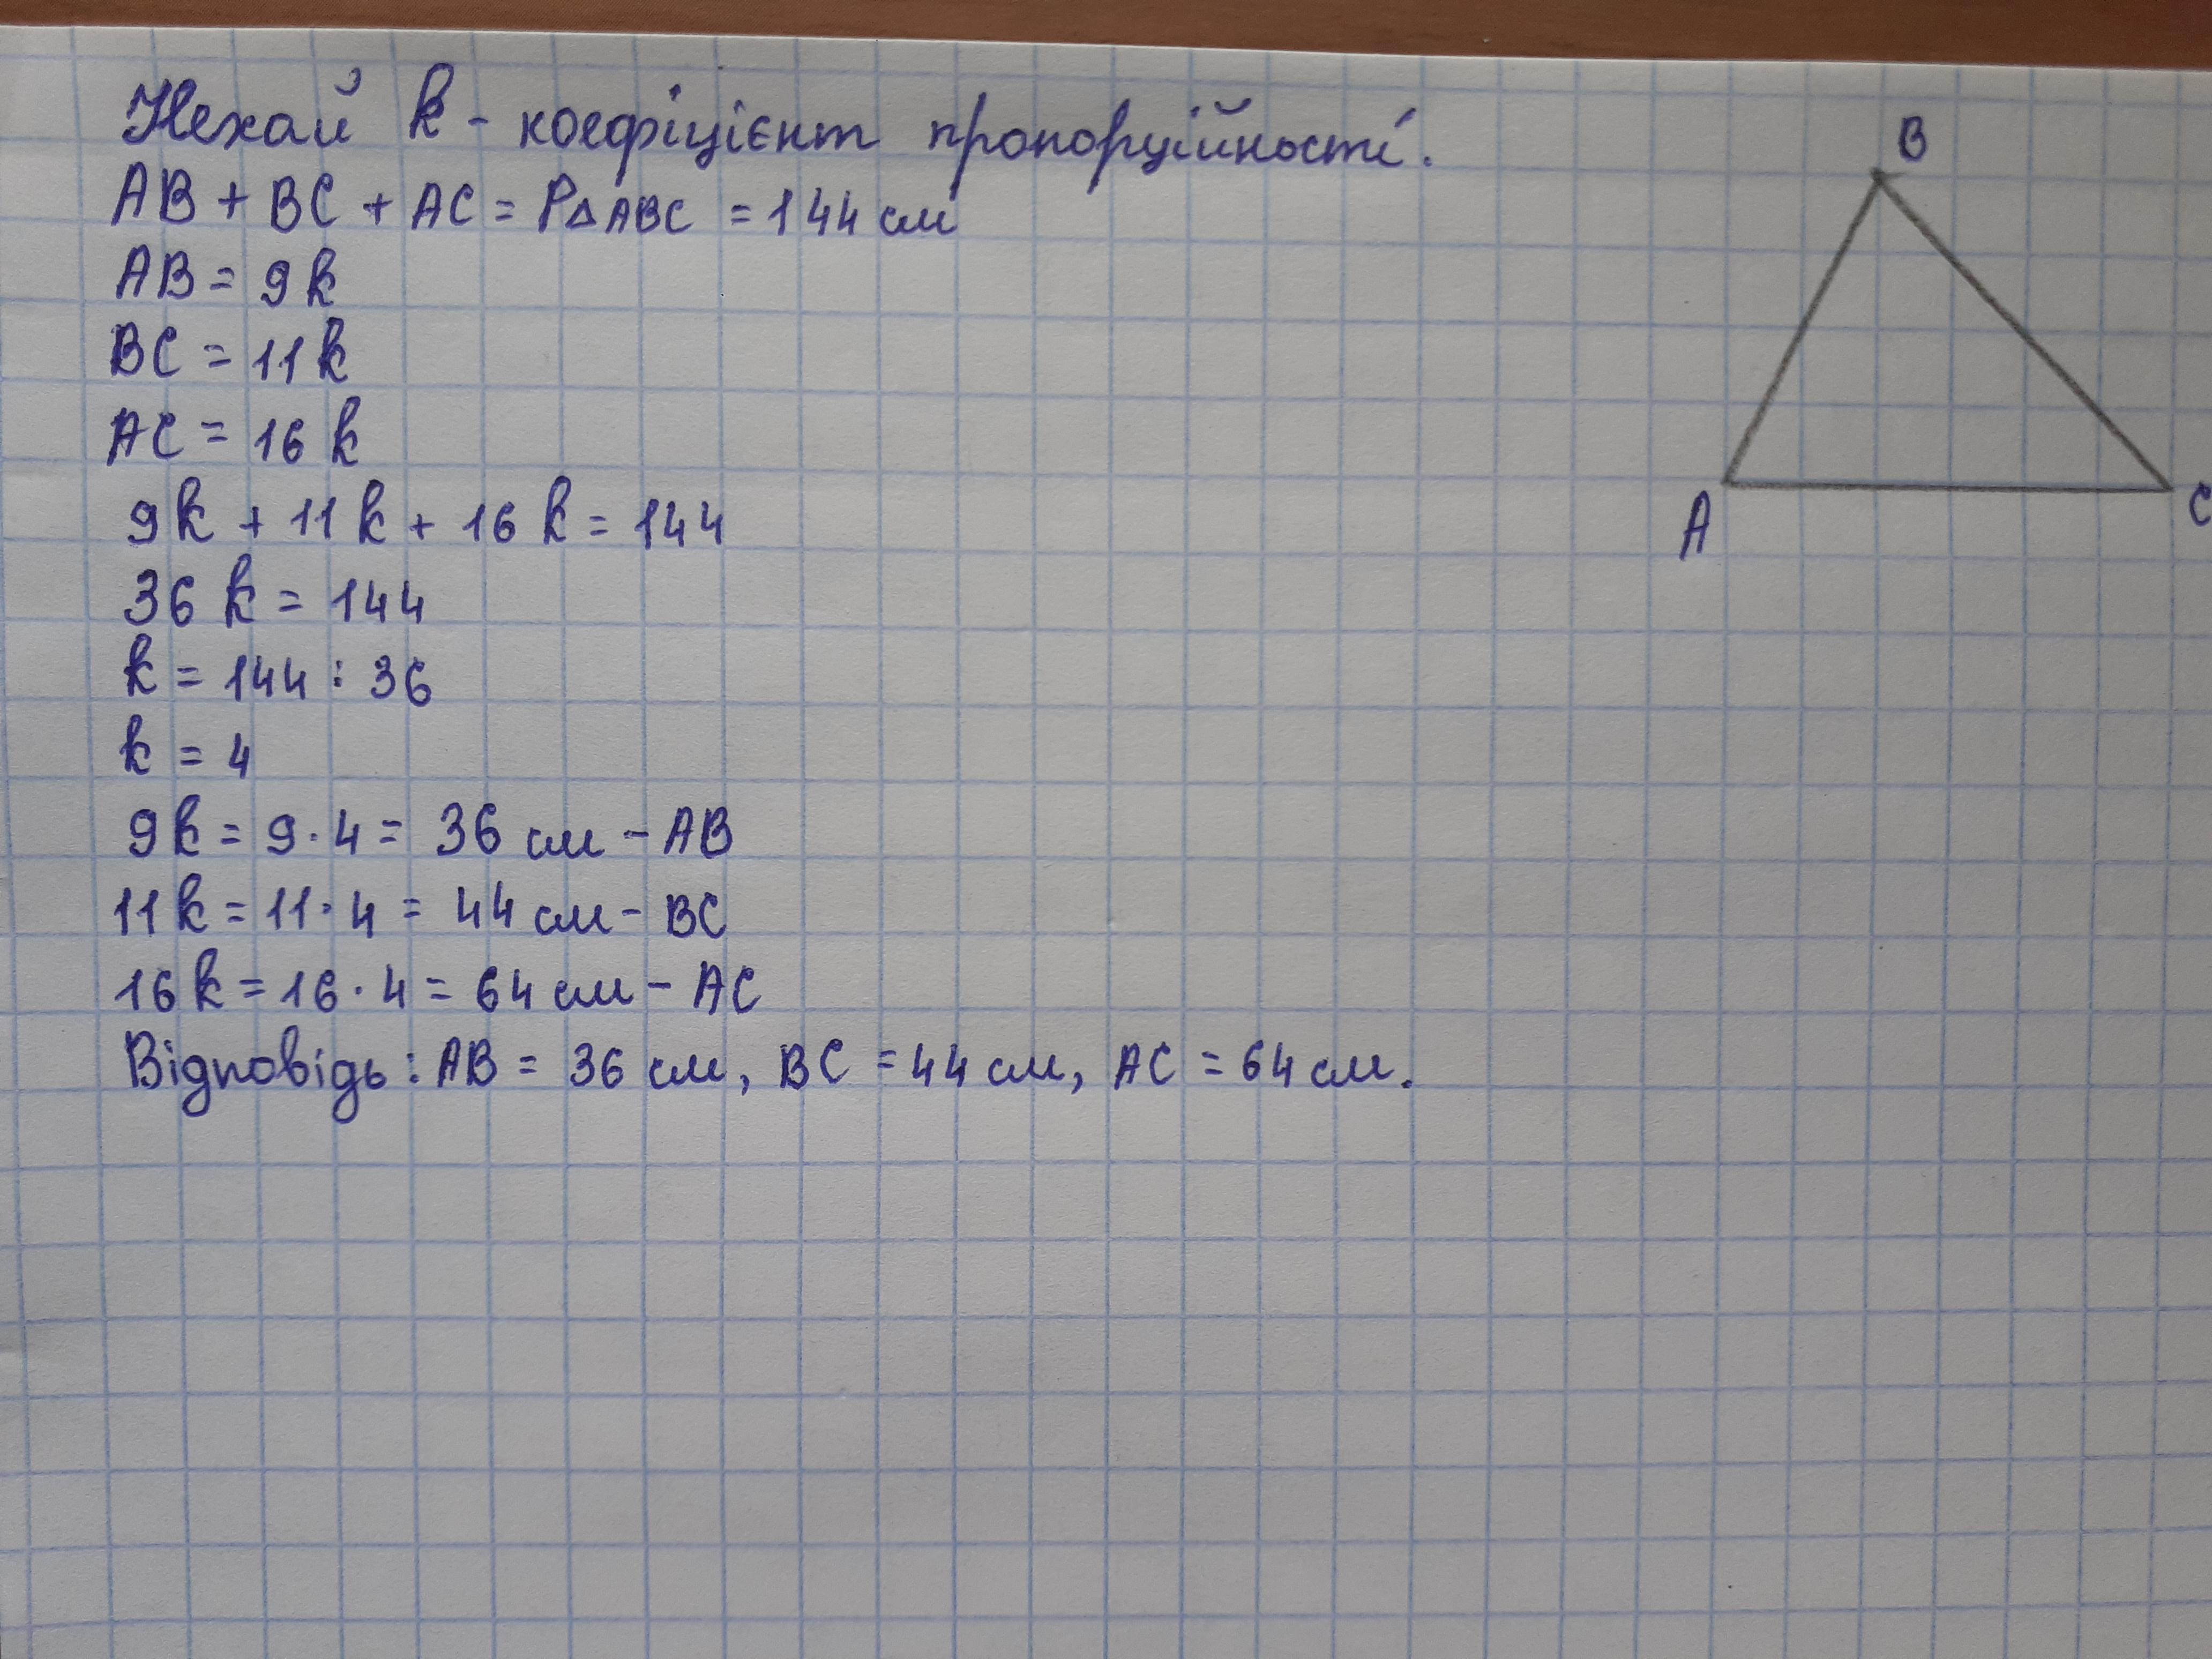 Нехай k - коефіцієнт пропорційності.
AB + BC + AC = P△ABC = 144 см
AB = 9k
BC = 11k
AC = 16k
9k + 11k + 16k = 144
36k = 144
k = 144 : 36
k = 4
9k = 9 · 4 = 36 см - AB
11k = 11 · 4 = 44 см - BC
16k = 16 · 4 = 64 см - AC
Відповідь: AB = 36 см, BC = 44 см, AC = 64 см.
B
A
C